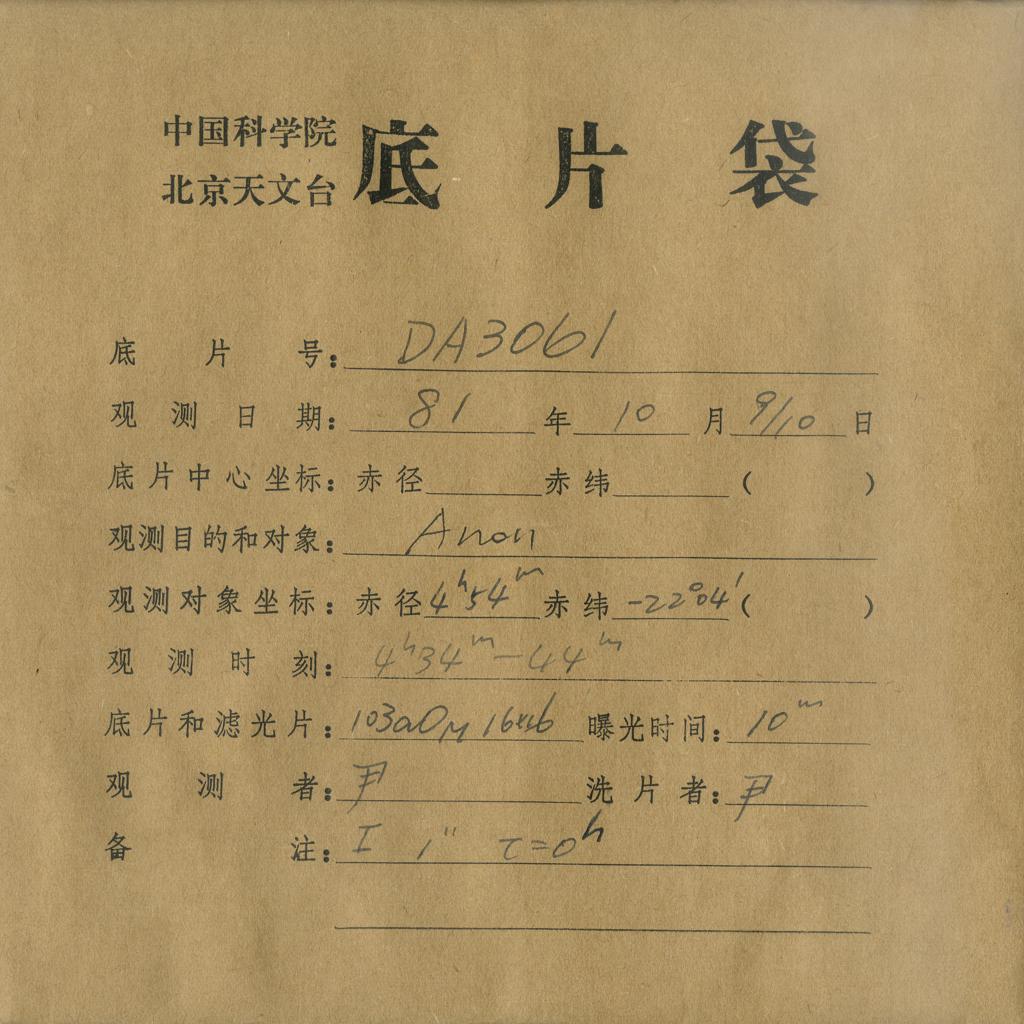 中国科学院
北京天文台
底片袋
底片号：DA3061
观测日期：81年10月9/10日
底片中心坐标：赤径 赤纬 （ ）
观测目的和对象：Anon
观测对象坐标：赤径4ʰ54ᵐ赤纬-22°04′（ ）
观测时刻：4ʰ34ᵐ-44ᵐ
底片和滤光片：103aO 曝光时间：10ᵐ
观测者：尹 洗片者：尹
备注：I 1″ τ=0ʰ